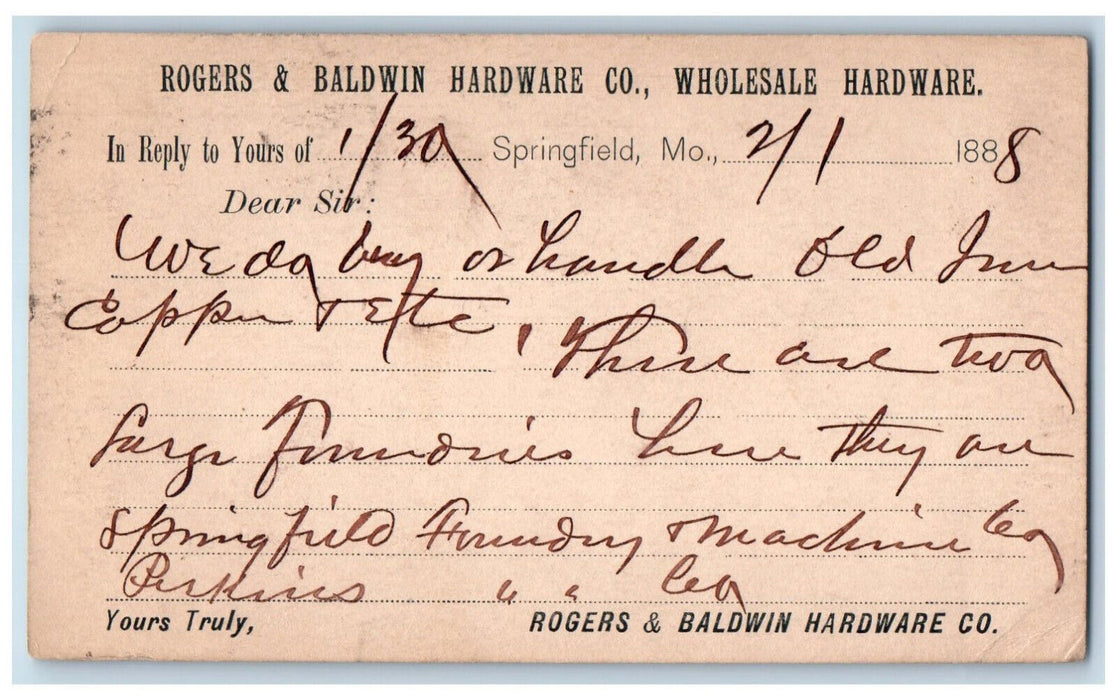 ROGERS & BALDWIN HARDWARE CO., WHOLESALE HARDWARE.
In Reply to Yours of 1/30 Springfield, Mo., 2/1 1888
Dear Sir:
We do buy or handle Old Iron
Copper & Etc, There are two
large Foundries here they are
Springfield Foundry & Machine Co
Perkins " " Co
Yours Truly, ROGERS & BALDWIN HARDWARE CO.